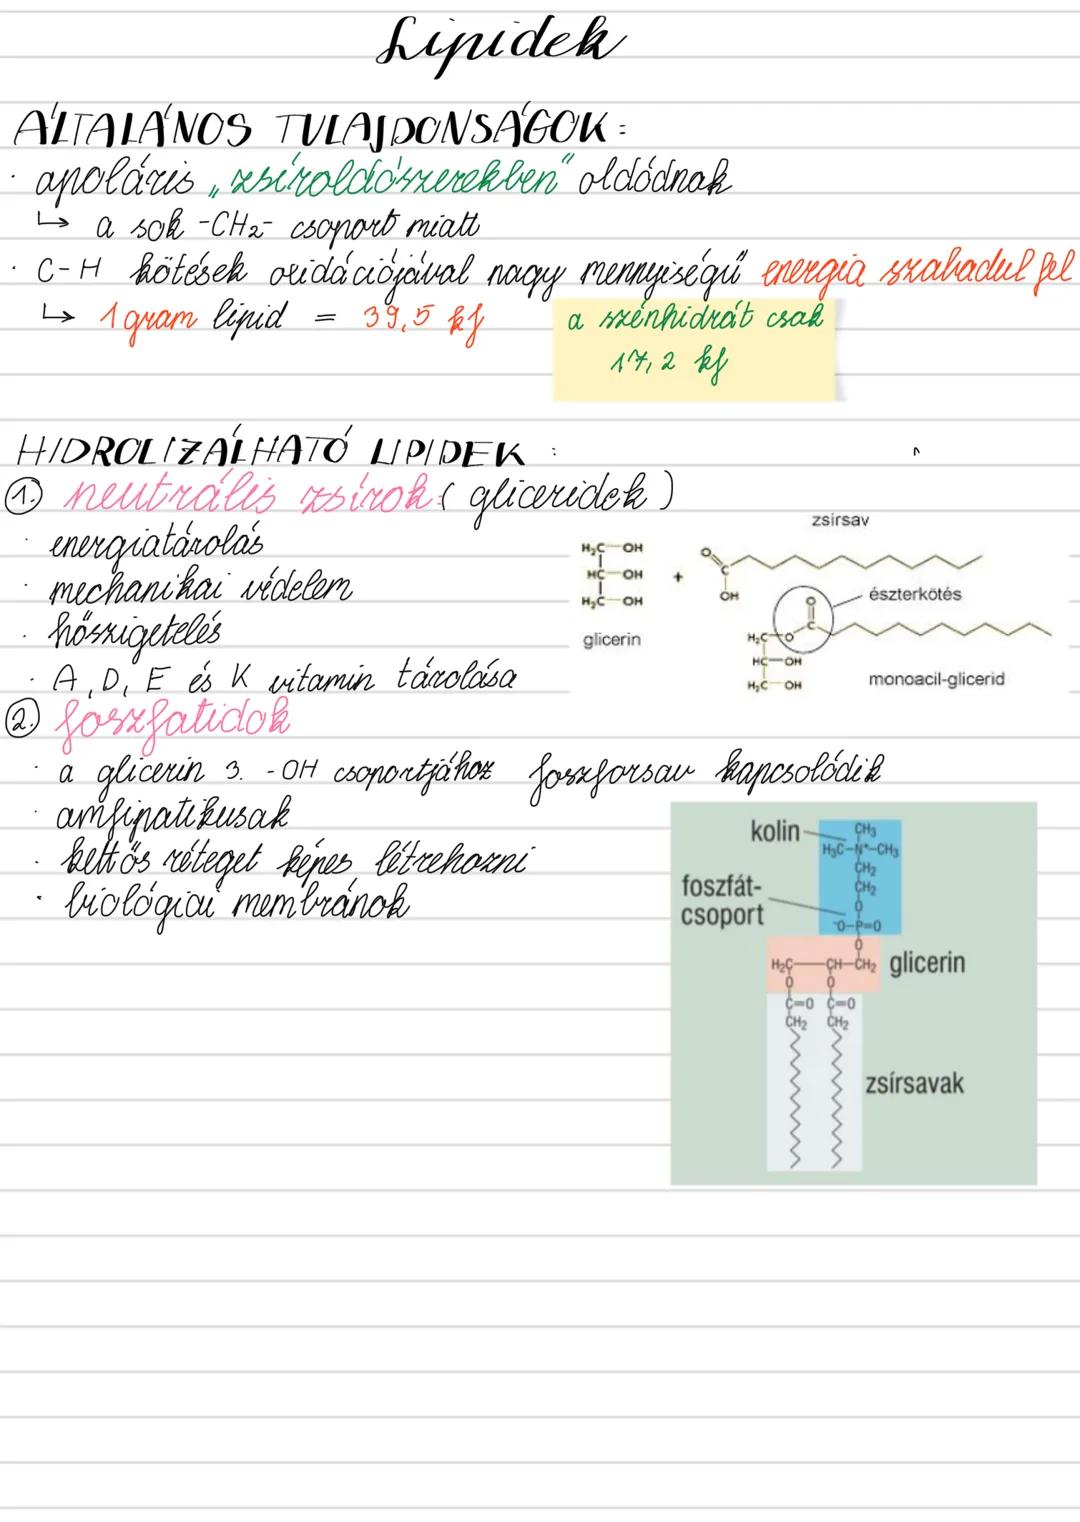 Lipidek
ÁLTALÁNOS TULAJDONSÁGOK:
· apoláris „zsíroldószerekben" oldódnak
↳ a sok -CH₂- csoport miatt
· C-H kötések oxidációjával nagy mennyiségű energia szabadul fel
↳ 1 gram lipid = 39,5 kJ
a szénhidrát csak
17,2 kJ
HIDROLIZÁLHATÓ LIPIDEK:
① neutrális zsírok: (gliceridek)
· energiatárolás
· mechanikai védelem
· hőszigetelés
· A, D, E és K vitamin tárolása
H₂C—OH
HC—OH
H₂C—OH
glicerin
+
zsírsav
O
C
OH
észterkötés
O
C
H₂C—O
HC—OH
H₂C—OH
monoacil-glicerid
② foszfatidok
· a glicerin 3. -OH csoportjához foszforsav kapcsolódik
· amfipatikusak
· kettős réteget képes létrehozni
· biológiai membránok
kolin
CH₃
H₃C–N⁺–CH₃
CH₂
CH₂
O
foszfát-
csoport
⁻O–P=O
O
H₂C—CH–CH₂ glicerin
O O
C=O C=O
CH₂ CH₂
zsírsavak